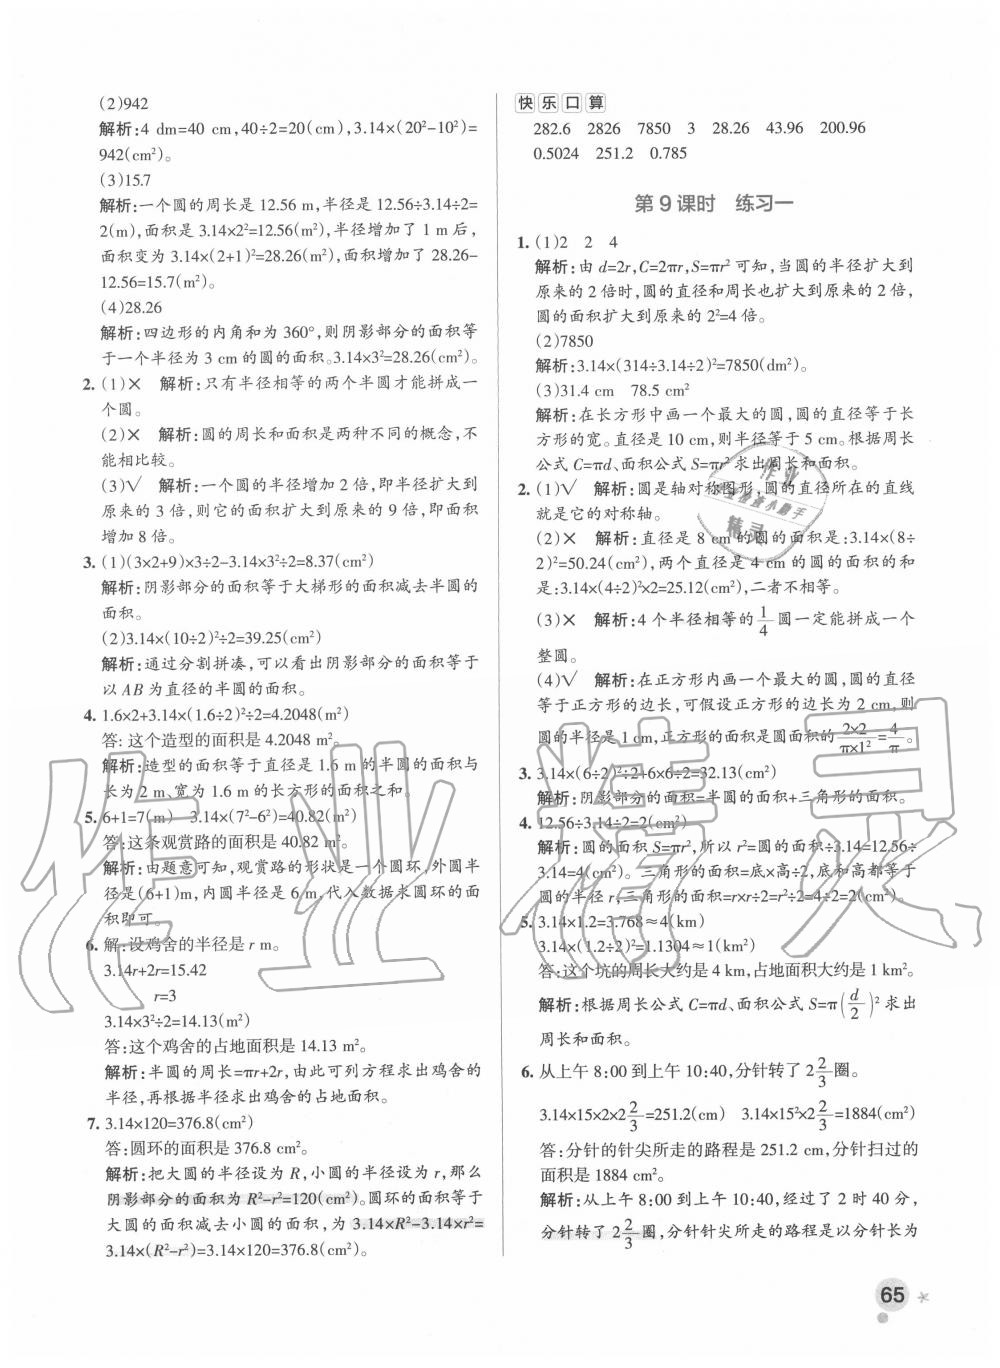 (2)942
解析:4 dm=40 cm,40÷2=20(cm),3.14×(20²-10²)=
942(cm²)。
(3)15.7
解析:一个圆的周长是 12.56 m,半径是 12.56÷3.14÷2=
2(m),面积是 3.14×2²=12.56(m²),半径增加了 1 m 后,
面积变为 3.14×(2+1)²=28.26(m²),面积增加了 28.26-
12.56=15.7(m²)。
(4)28.26
解析:四边形的内角和为 360°,则阴影部分的面积等
于一个半径为 3 cm 的圆的面积。3.14×3²=28.26(cm²)。
2. (1)× 解析:只有半径相等的两个半圆才能拼成一
个圆。
(2)× 解析:圆的周长和面积是两种不同的概念,不
能相比较。
(3)√ 解析:一个圆的半径增加 2 倍,即半径扩大到
原来的 3 倍,则它的面积扩大到原来的 9 倍,即面积
增加 8 倍。
3. (1)(3×2+9)×3÷2-3.14×3²÷2=8.37(cm²)
解析:阴影部分的面积等于大梯形的面积减去半圆的
面积。
(2)3.14×(10÷2)²÷2=39.25(cm²)
解析:通过分割拼凑,可以看出阴影部分的面积等于
以 AB 为直径的半圆的面积。
4. 1.6×2+3.14×(1.6÷2)²÷2=4.2048(m²)
答:这个造型的面积是 4.2048 m²。
解析:造型的面积等于直径是 1.6 m 的半圆的面积与
长为 2 m、宽为 1.6 m 的长方形的面积之和。
5. 6+1=7(m) 3.14×(7²-6²)=40.82(m²)
答:这条观赏路的面积是 40.82 m²。
解析:由题意可知,观赏路的形状是一个圆环,外圆半
径是(6+1)m,内圆半径是 6 m,代入数据求圆环的面
积即可。
6. 解:设鸡舍的半径是 r m。
3.14r+2r=15.42
r=3
3.14×3²÷2=14.13(m²)
答:这个鸡舍的占地面积是 14.13 m²。
解析:半圆的周长=πr+2r,由此可列方程求出鸡舍的
半径,再根据半径求出鸡舍的占地面积。
7. 3.14×120=376.8(cm²)
答:圆环的面积是 376.8 cm²。
解析:把大圆的半径设为 R,小圆的半径设为 r,那么
阴影部分的面积为 R²-r²=120(cm²)。圆环的面积等于
大圆的面积减去小圆的面积,为 3.14×R²-3.14×r²=
3.14×(R²-r²)=3.14×120=376.8(cm²)。
快乐口算
282.6 2826 7850 3 28.26 43.96 200.96
0.5024 251.2 0.785
第 9 课时 练习一
1. (1)2 2 4
解析:由 d=2r,C=2πr,S=πr² 可知,当圆的半径扩大到
原来的 2 倍时,圆的直径和周长也扩大到原来的 2 倍,
圆的面积扩大到原来的 2²=4 倍。
(2)7850
解析:3.14×(314÷3.14÷2)²=7850(dm²)。
(3)31.4 cm 78.5 cm²
解析:在长方形中画一个最大的圆,圆的直径等于长
方形的宽。直径是 10 cm,则半径等于 5 cm。根据周长
公式 C=πd、面积公式 S=πr² 求出周长和面积。
2. (1)√ 解析:圆是轴对称图形,圆的直径所在的直线
就是它的对称轴。
(2)× 解析:直径是 8 cm 的圆的面积是:3.14×(8÷
2)²=50.24(cm²),两个直径是 4 cm 的圆的面积的和
是:3.14×(4÷2)²×2=25.12(cm²),二者不相等。
(3)× 解析:4 个半径相等的 1/4 圆一定能拼成一个
整圆。
(4)√ 解析:在正方形内画一个最大的圆,圆的直径
等于正方形的边长,可假设正方形的边长为 2 cm,则
圆的半径是 1 cm,正方形的面积是圆面积的 2×2/π×1²=4/π。
3. 3.14×(6÷2)²÷2+6×6÷2=32.13(cm²)
解析:阴影部分的面积=半圆的面积+三角形的面积。
4. 12.56÷3.14÷2=2(cm²)
解析:圆的面积 S=πr²,所以 r²=圆的面积÷3.14=12.56÷
3.14=4(cm²)。三角形的面积=底×高÷2,底和高都等于
圆的半径 r,三角形的面积=r×r÷2=r²÷2=4÷2=2(cm²)。
5. 3.14×1.2=3.768≈4(km)
3.14×(1.2÷2)²=1.1304≈1(km²)
答:这个坑的周长大约是 4 km,占地面积大约是 1 km²。
解析:根据周长公式 C=πd、面积公式 S=π(d/2)² 求出
周长和面积。
6. 从上午 8:00 到上午 10:40,分针转了 2 2/3 圈。
3.14×15×2×2 2/3=251.2(cm) 3.14×15²×2 2/3=1884(cm²)
答:分针的针尖所走的路程是 251.2 cm,分针扫过的
面积是 1884 cm²。
解析:从上午 8:00 到上午 10:40,经过了 2 时 40 分,
分针转了 2 2/3 圈,分针针尖所走的路程是以分针长为
65
作业精灵
作业
精灵